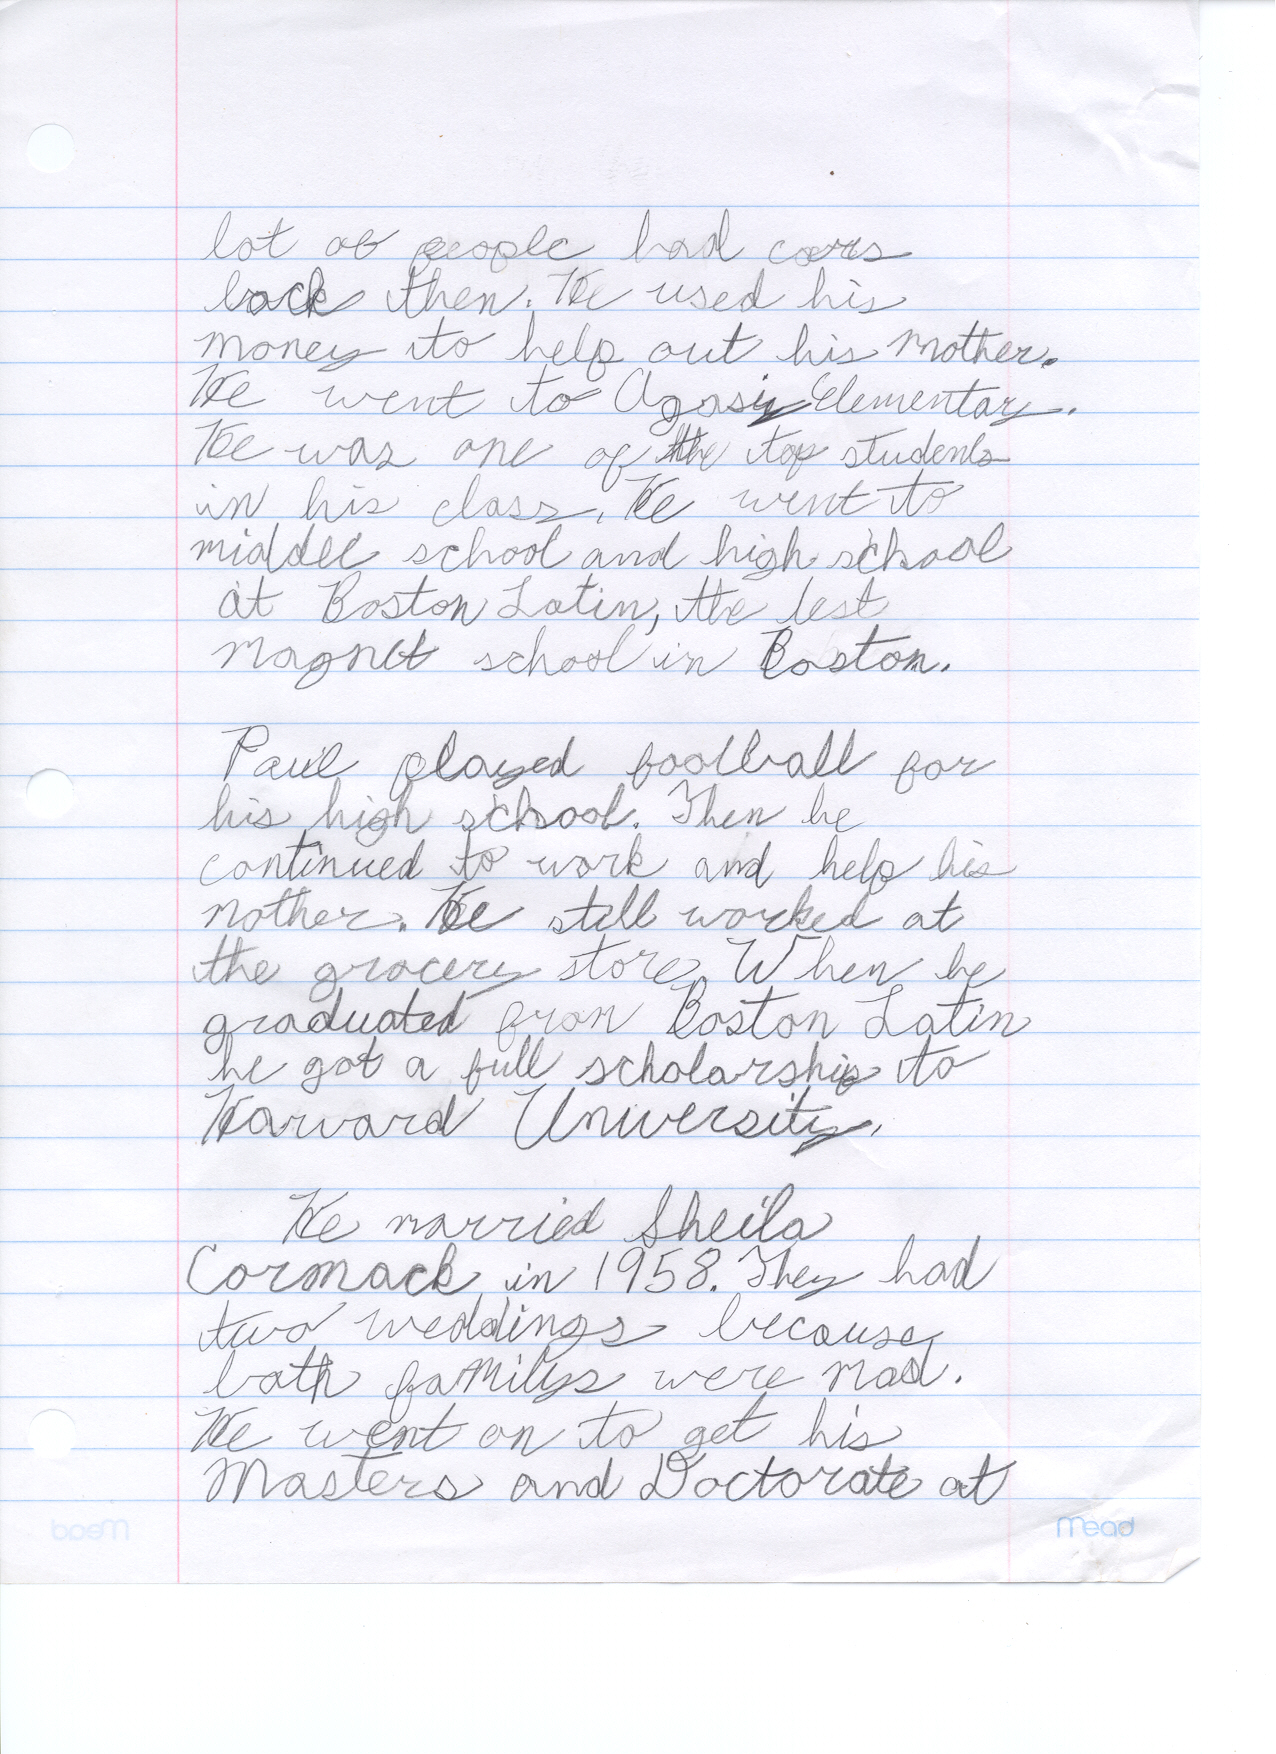 lot of people had cars
back then. He used his
money to help out his mother.
He went to Agasiy Elementary.
He was one of the top students
in his class. He went to
middle school and high school
at Boston Latin, the best
magnet school in Boston.
Paul played football for
his high school. Then he
continued to work and help his
mother. He still worked at
the grocery store. When he
graduated from Boston Latin
he got a full scholarship to
Harvard University.
He married Sheila
Cormack in 1958. They had
two weddings because
both familys were mad.
He went on to get his
Masters and Doctorate at
Mead